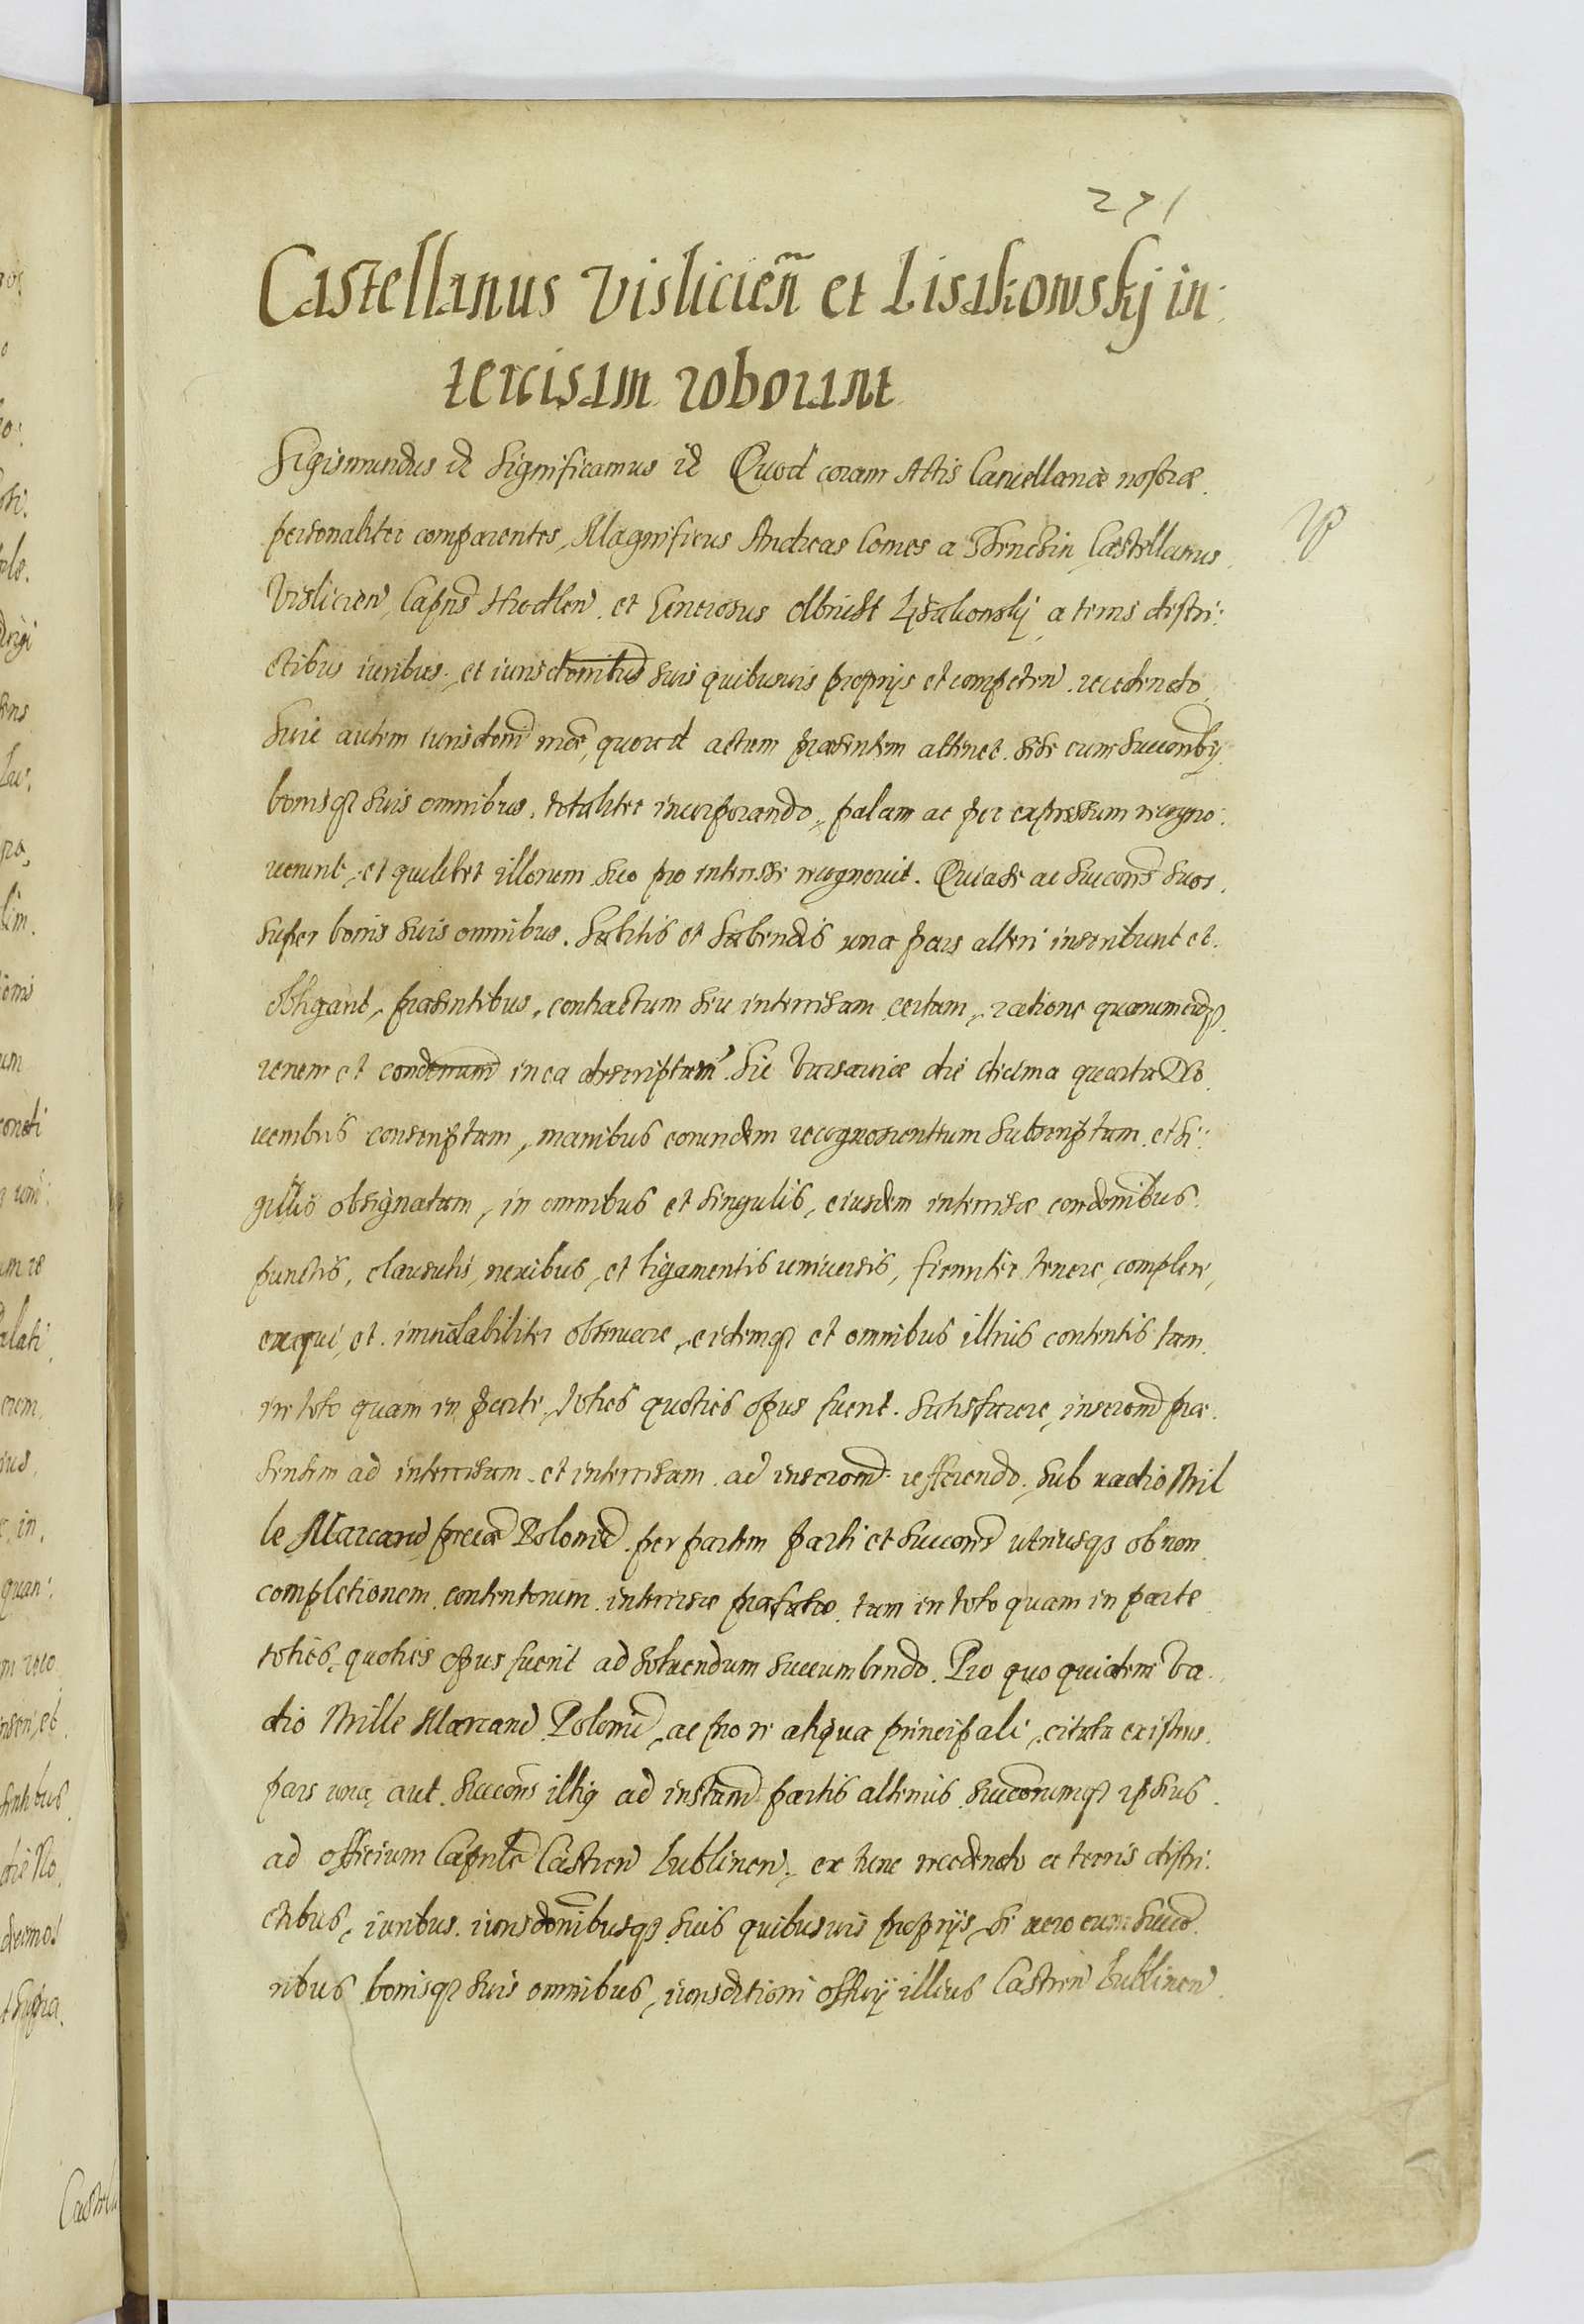 271
Castellanus Vislicien̄ et Lisakowskj in:
tercisam roborant
Sigismundus &c Significamus &c Quod coram Actis Cancellariæ nostræ
personaliter comparentes, Magnificus Andreas Comes a Thenchin Castellanus
Vislicien, Capns Hrodlen. et Generosus Olbricht Lysakowskj a terris distri:
ctibus iuribus, et iurisdonibus suis quibusuis proprijs et competen. recedendo
Huic autem iurisdoni quo ad actum præsentem attinet. sese cum succoribus
bonisq suis omnibus, totaliter incorporando, palam ac per expressum recogno:
uerunt, et quilibet illorum suo pro interesse recognouit. Quia se ac succores suos,
super bonis suis omnibus. habitis et habendis una pars alteri inscribunt et
obligant, præsentibus, contractum seu intercisam certam, ratione
et in ea descriptam. hic Varsauiæ die decima quarta No
uembris conscriptam, manibus eorundem recognoscentium subscriptam et si:
gillis obsignatam, in omnibus et singulis, eiusdem intercisæ condonibus
punctis, clausulis, nexibus, et ligamentis uniuersis, firmiter tenere, complere,
exequi, et inuiolabiliter obseruare, eidemq et omnibus illius contentis tam
in toto quam in parte, toties quoties opus fuerit. satisfacere, inscronem præ
sentem ad intercisam et intercisam ad inscronem referendo. sub vadio Mil
le Marcarū pecæ Polonic. per partem parti et succores utriusq ob non
completionem contentorum intercisæ præfatæ. tam in toto quam in parte
toties, quoties opus fuerit ad soluendum succumbendo. Pro quo quidem Va
dio Mille Marcarū Poloni, ac pro re aliqua principali, citata existens
pars una, aut succores illius ad instam partis alterius succorumq ipsius
ad officium Capnle Castren Lublinen, ex tunc recedendo a terris distri:
ctibus, iuribus. iurisdonibusq suis quibusuis proprijs, se uero cum succo
ribus bonisq suis omnibus, iurisditioni officij illius Castren Lublinen